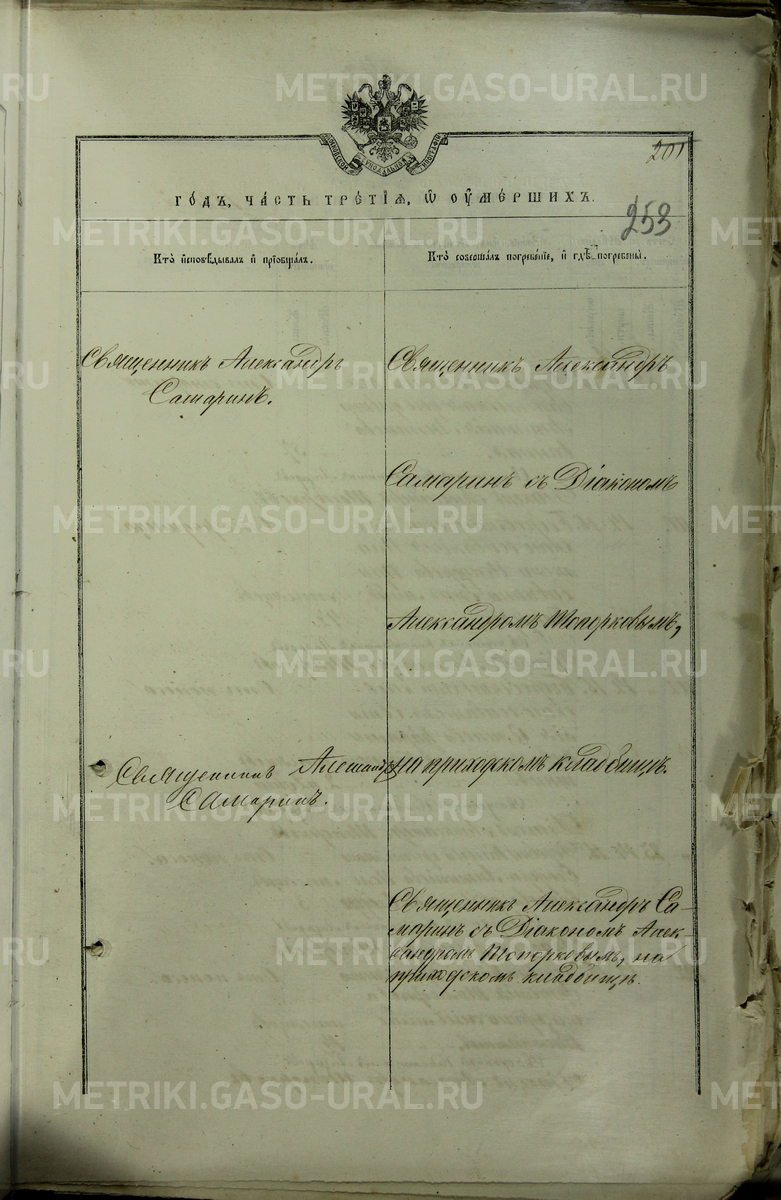 METRIKI.GASO-URAL.RU
201
ГОДЪ, ЧАСТЬ ТРЕТІЯ, Ѿ ОУМЕРШИХЪ.
253
Кто исповѣдывалъ и пріобщалъ.
Кто совершалъ погребеніе, и гдѣ погребены.
Священникъ Александръ
Самаринъ.
Священникъ Александръ
Самаринъ съ Діакономъ
Александромъ Топорковымъ,
на приходскомъ кладбищѣ.
Священникъ Александръ
Самаринъ.
Священникъ Александръ Са-
маринъ съ Діакономъ Алек-
сандромъ Топорковымъ, на
приходскомъ кладбищѣ.